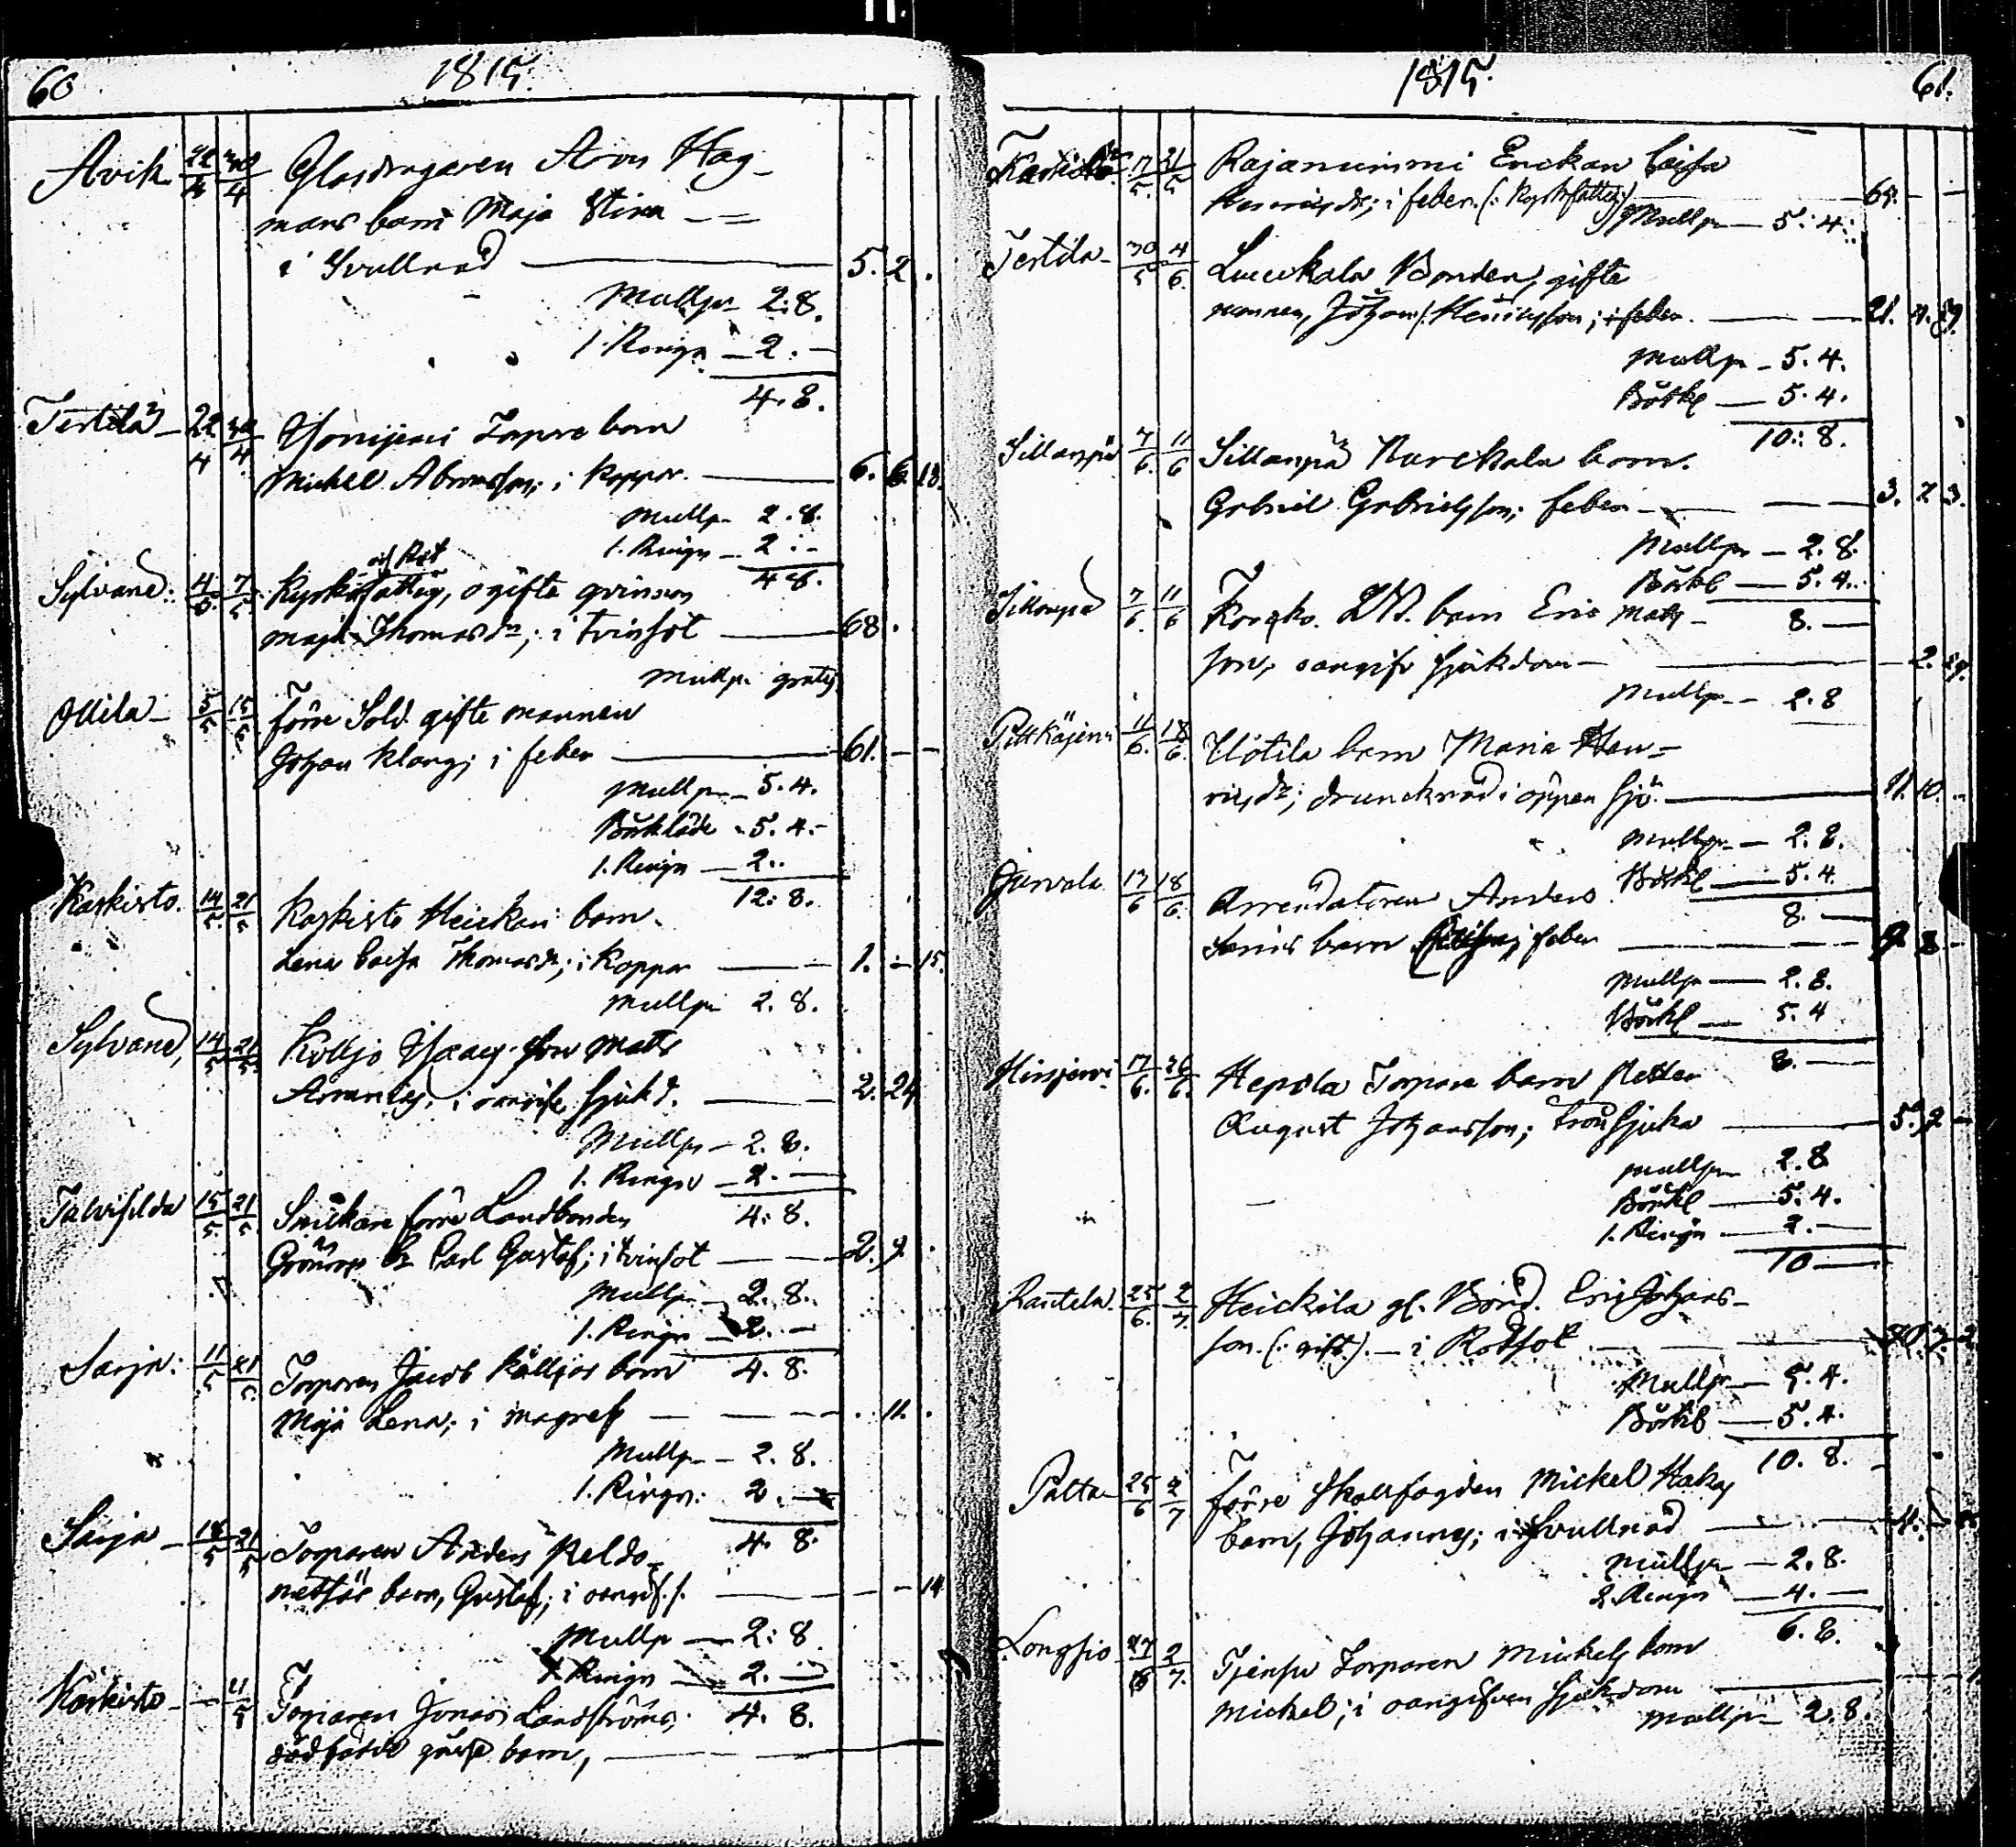 60 1815.
Avik. 22/4 30/4 Glasdragaren Arvis Hag-
mans barn Maja Stina
i Svullnad 5. 2.
Mullpr 2:8.
1. Ringn 2. -
4. 8.
Tertilä 22/4 30/4 Torpare barn
Michel Abramsson; i koppor. 6. 6. 13.
Mullpr 2. 8.
1. Ringn 2. -
4 8.
Sylvanä: 4/5 7/5 Kyrkofattig, ogifta qvinnan
Maja Thomasdr; i tvinsot 68.
Mullpr gratis
Ollila 5/5 15/5 förre Sold. gifte mannen
Johan Klang; i feber 61. - -
Mullpr 5. 4.
Båkläde 5. 4. -
1. Ringn 2..
12: 8.
Kaskisto. 14/5 21/5 Kaskisto Heickari barn
Lena Caisa Thomasdr; i koppor 1. - 15.
Mullpr 2. 8.
Sylvanä, 14/5 21/5 Kolljo Isacs son Matts
i oangife sjukd. 2. 24
Mullpr 2. 8.
1. Ringn 2. -
4: 8.
Talvisilda 15/5 21/5 Snickare förre Landbonden
Grönroos br Carl Gustaf; i tvinsot 2. 9.
Mullpr 2. 8.
1. Ringn 2. -
4. 8.
Sarja: 11/5 21/5 Torparen Jacob Källjos barn
Maja Lena; i magref . 11.
Mullpr 2. 8.
1. Ringn: 2. -
4. 8.
Sarja 18/5 21/5 Torparen Anders Peldo-
barn, Gustaf; i oangif. s. - - 14
Mullp 2: 8
1 Ringn 2. -
4. 8.
Kaskisto - 21/5 Torparen Jonas Landströms
dödfödde gosse barn,
1815. 61.
Kaskisto 17/5 21/5 Rajanummi Enckan Caisa
Henricsdr; i feber. (: kyrkofattig :) 65. - -
Mullpr 5: 4:
Tertila 30/5 4/6 Luuckala Bonden, gifte
mannen, Johan Henricsson; i feber. 21. 4. 29.
Mullpr 5. 4.
Bårkl 5. 4.
10: 8.
Sillanpää 7/6 11/6 Sillanpää Karckala barn.
Gabriel Gabrielsson; feber 3. 2 3.
Mullpr 2. 8.
Bårkl 5. 4.
8. -
Sillanpää 7/6 11/6 barn Eric Mats-
son, oangifv sjukdom - 2. 29.
Mullpr 2. 8
Pitkäjervi 11/6 18/6 Ylötila barn Maria Hen-
ricsdr; drunknad i öppen sjö. 11. 10. -
Mullpr 2. 8.
Bårkl 5. 4.
8. -
Järvala 17/6 18/6 Arrendatoren Anders
barn feber
Mullpr 2. 8.
Bårkl 5. 4
8. -
Hirsjervi 17/6 26/6 Hepola Torpare barn Petter
August Johansson; sjuka 5. 2 -
Mullpr 2. 8
Bårkl 5. 4.
1. Ringn 2. -
10 -
Rautela 25/6 2/7 Heickila gl. Bond. Eric Johans-
son. (: gift :) i Rödsot
Mullpr 5. 4.
Bårkl 5. 4.
10. 8.
Palta 25/6 2/7 förre Skallfogden Mickel Hakes
barn, Johannes; i Svullnad 4. - -
Mullpr 2. 8.
2. Ringn 4. -
6. 8.
Longsio 27/6 2/7 Torparen Mickels barn
Mickel; i oangifven sjukdom
Mullpr 2. 8.